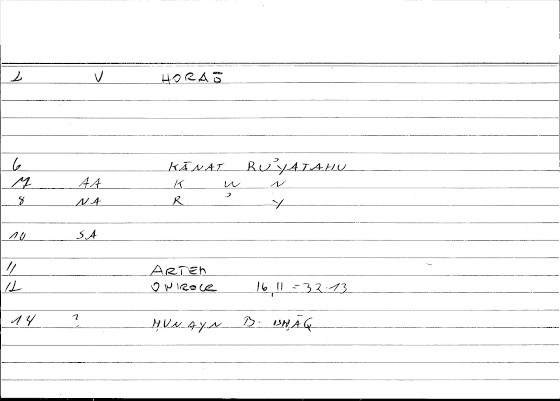 1 V HORAŌ
6 KĀNAT RUʾYATAHU
M AA K W N
8 NA R ʾ Y
10 SA
11 ARTEM
12 ONIROCR 16,11 = 32.13
14 ? ḤUNAYN B. ISḤĀQ